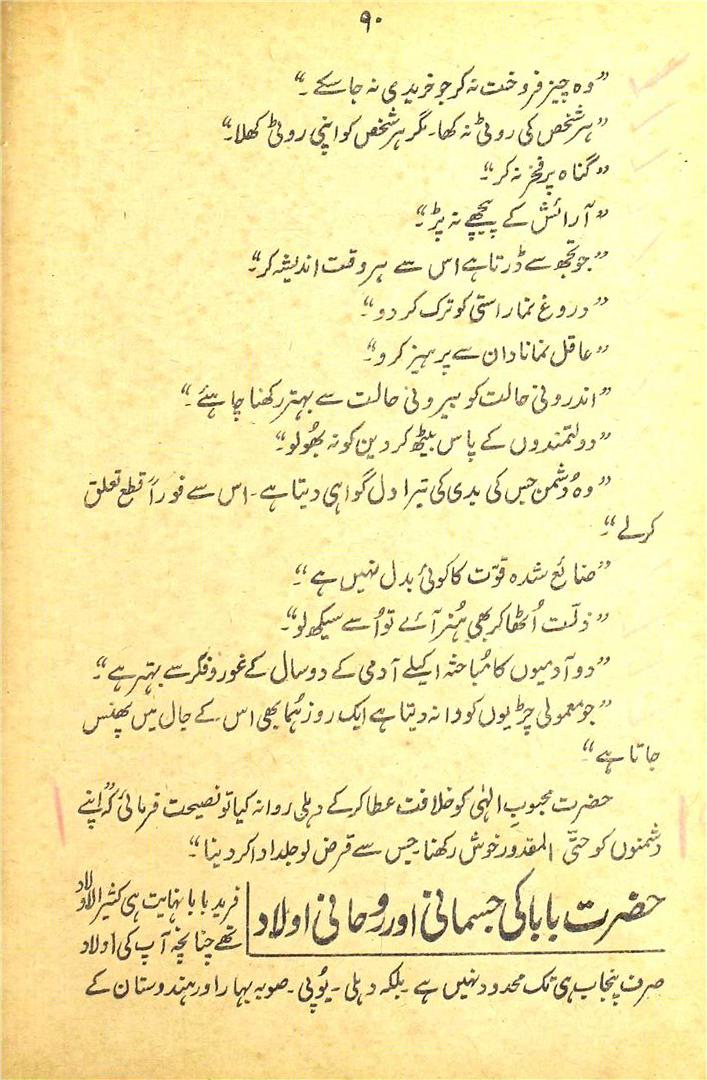 ۹۰
”وہ چیز فروخت نہ کر جو خریدی نہ جا سکے۔“
”ہر شخص کی روٹی نہ کھا۔ مگر ہر شخص کو اپنی روٹی کھلا۔“
”گناہ پر فخر نہ کر“۔
”آرائش کے پیچھے نہ پڑ“۔
”جو تجھ سے ڈرتا ہے اس سے ہر وقت اندیشہ کر“۔
”دروغ نما راستی کو ترک کر دو“۔
”عاقل نما نادان سے پرہیز کرو“۔
”اندرونی حالت کو بیرونی حالت سے بہتر رکھنا چاہئے۔“
”دولتمندوں کے پاس بیٹھ کر دین کو نہ بھُولو“۔
”وہ دُشمن جس کی بدی کی تیرا دل گواہی دیتا ہے۔ اس سے فوراً قطع تعلق
کرلے“۔
”ضائع شدہ قوّت کا کوئی بدل نہیں ہے“۔
”ذلّت اُٹھا کر بھی ہُنر آئے تو اُسے سیکھ لو“۔
”دو آدمیوں کا مُباحثہ اکیلے آدمی کے دو سال کے غور و فکر سے بہتر ہے“۔
”جو معمولی چڑیوں کو دانہ دیتا ہے ایک روز ہُما بھی اس کے جال میں پھنس
جاتا ہے“۔
حضرت محبوبِ الٰہی کو خلافت عطا کر کے دہلی روانہ کیا تو نصیحت فرمائی کہ ”اپنے
دشمنوں کو حتّٰی المقدور خوش رکھنا۔ جس سے قرض لو جلد ادا کر دینا“۔
حضرت بابا کی جسمانی اور روحانی اولاد
فرید بابا نہایت ہی کثیر الاولاد
تھے چنانچہ آپ کی اولاد
صرف پنجاب ہی تک محدود نہیں ہے۔ بلکہ دہلی۔ یُوپی۔ صوبہ بہار اور ہندوستان کے